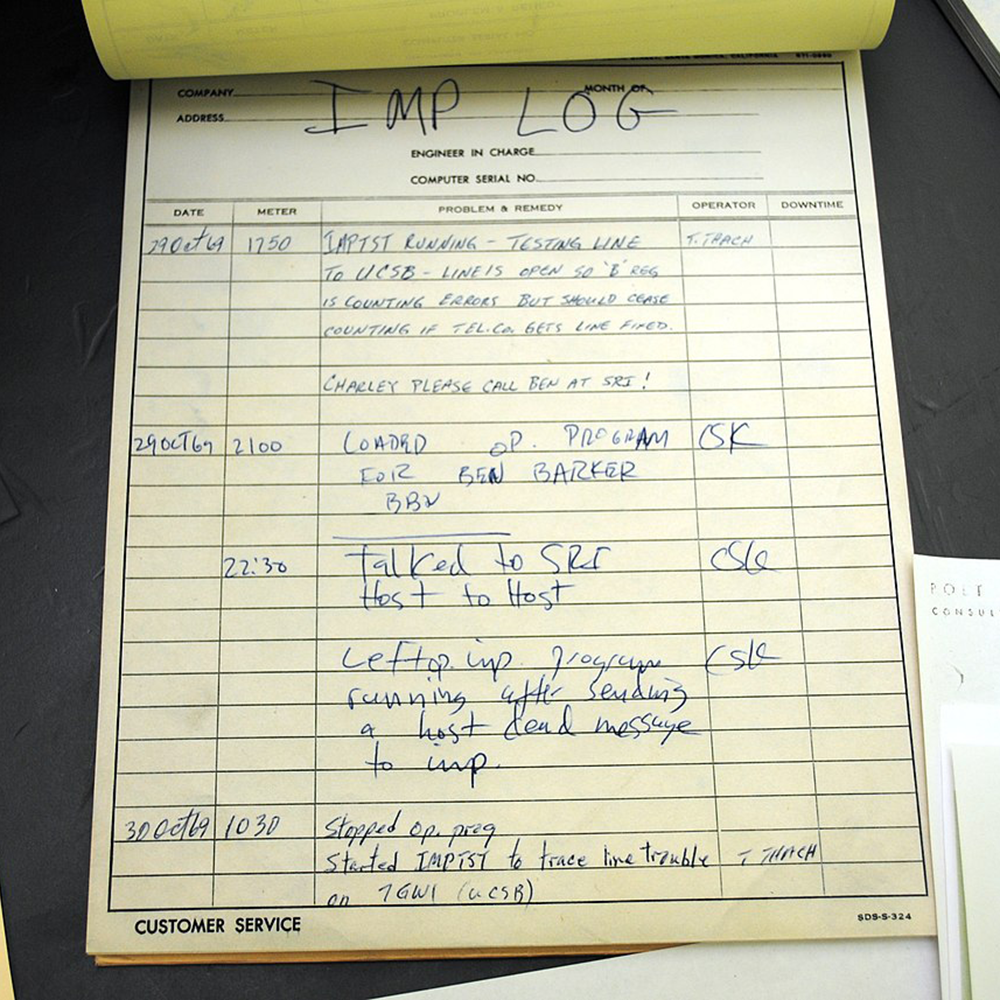 COMPANY MONTH OF
IMP LOG
ADDRESS
ENGINEER IN CHARGE
COMPUTER SERIAL NO.
DATE METER PROBLEM & REMEDY OPERATOR DOWNTIME
29Oct69 1750 IMPTST RUNNING - TESTING LINE T. THACH
TO UCSB - LINE IS OPEN SO 'B' REG
IS COUNTING ERRORS BUT SHOULD CEASE
COUNTING IF TEL. Co. GETS LINE FIXED.
CHARLEY PLEASE CALL BEN AT SRI!
29OCT69 2100 LOADED OP. PROGRAM CSK
FOR BEN BARKER
BBN
22:30 Talked to SRI CSK
Host to Host
Left op. imp. program CSK
running after sending
a host dead message
to imp.
30Oct69 1030 Stopped op. prog
Started IMPTST to trace line trouble T THACH
on (UCSB)
CUSTOMER SERVICE SDS-S-324
CONSUL